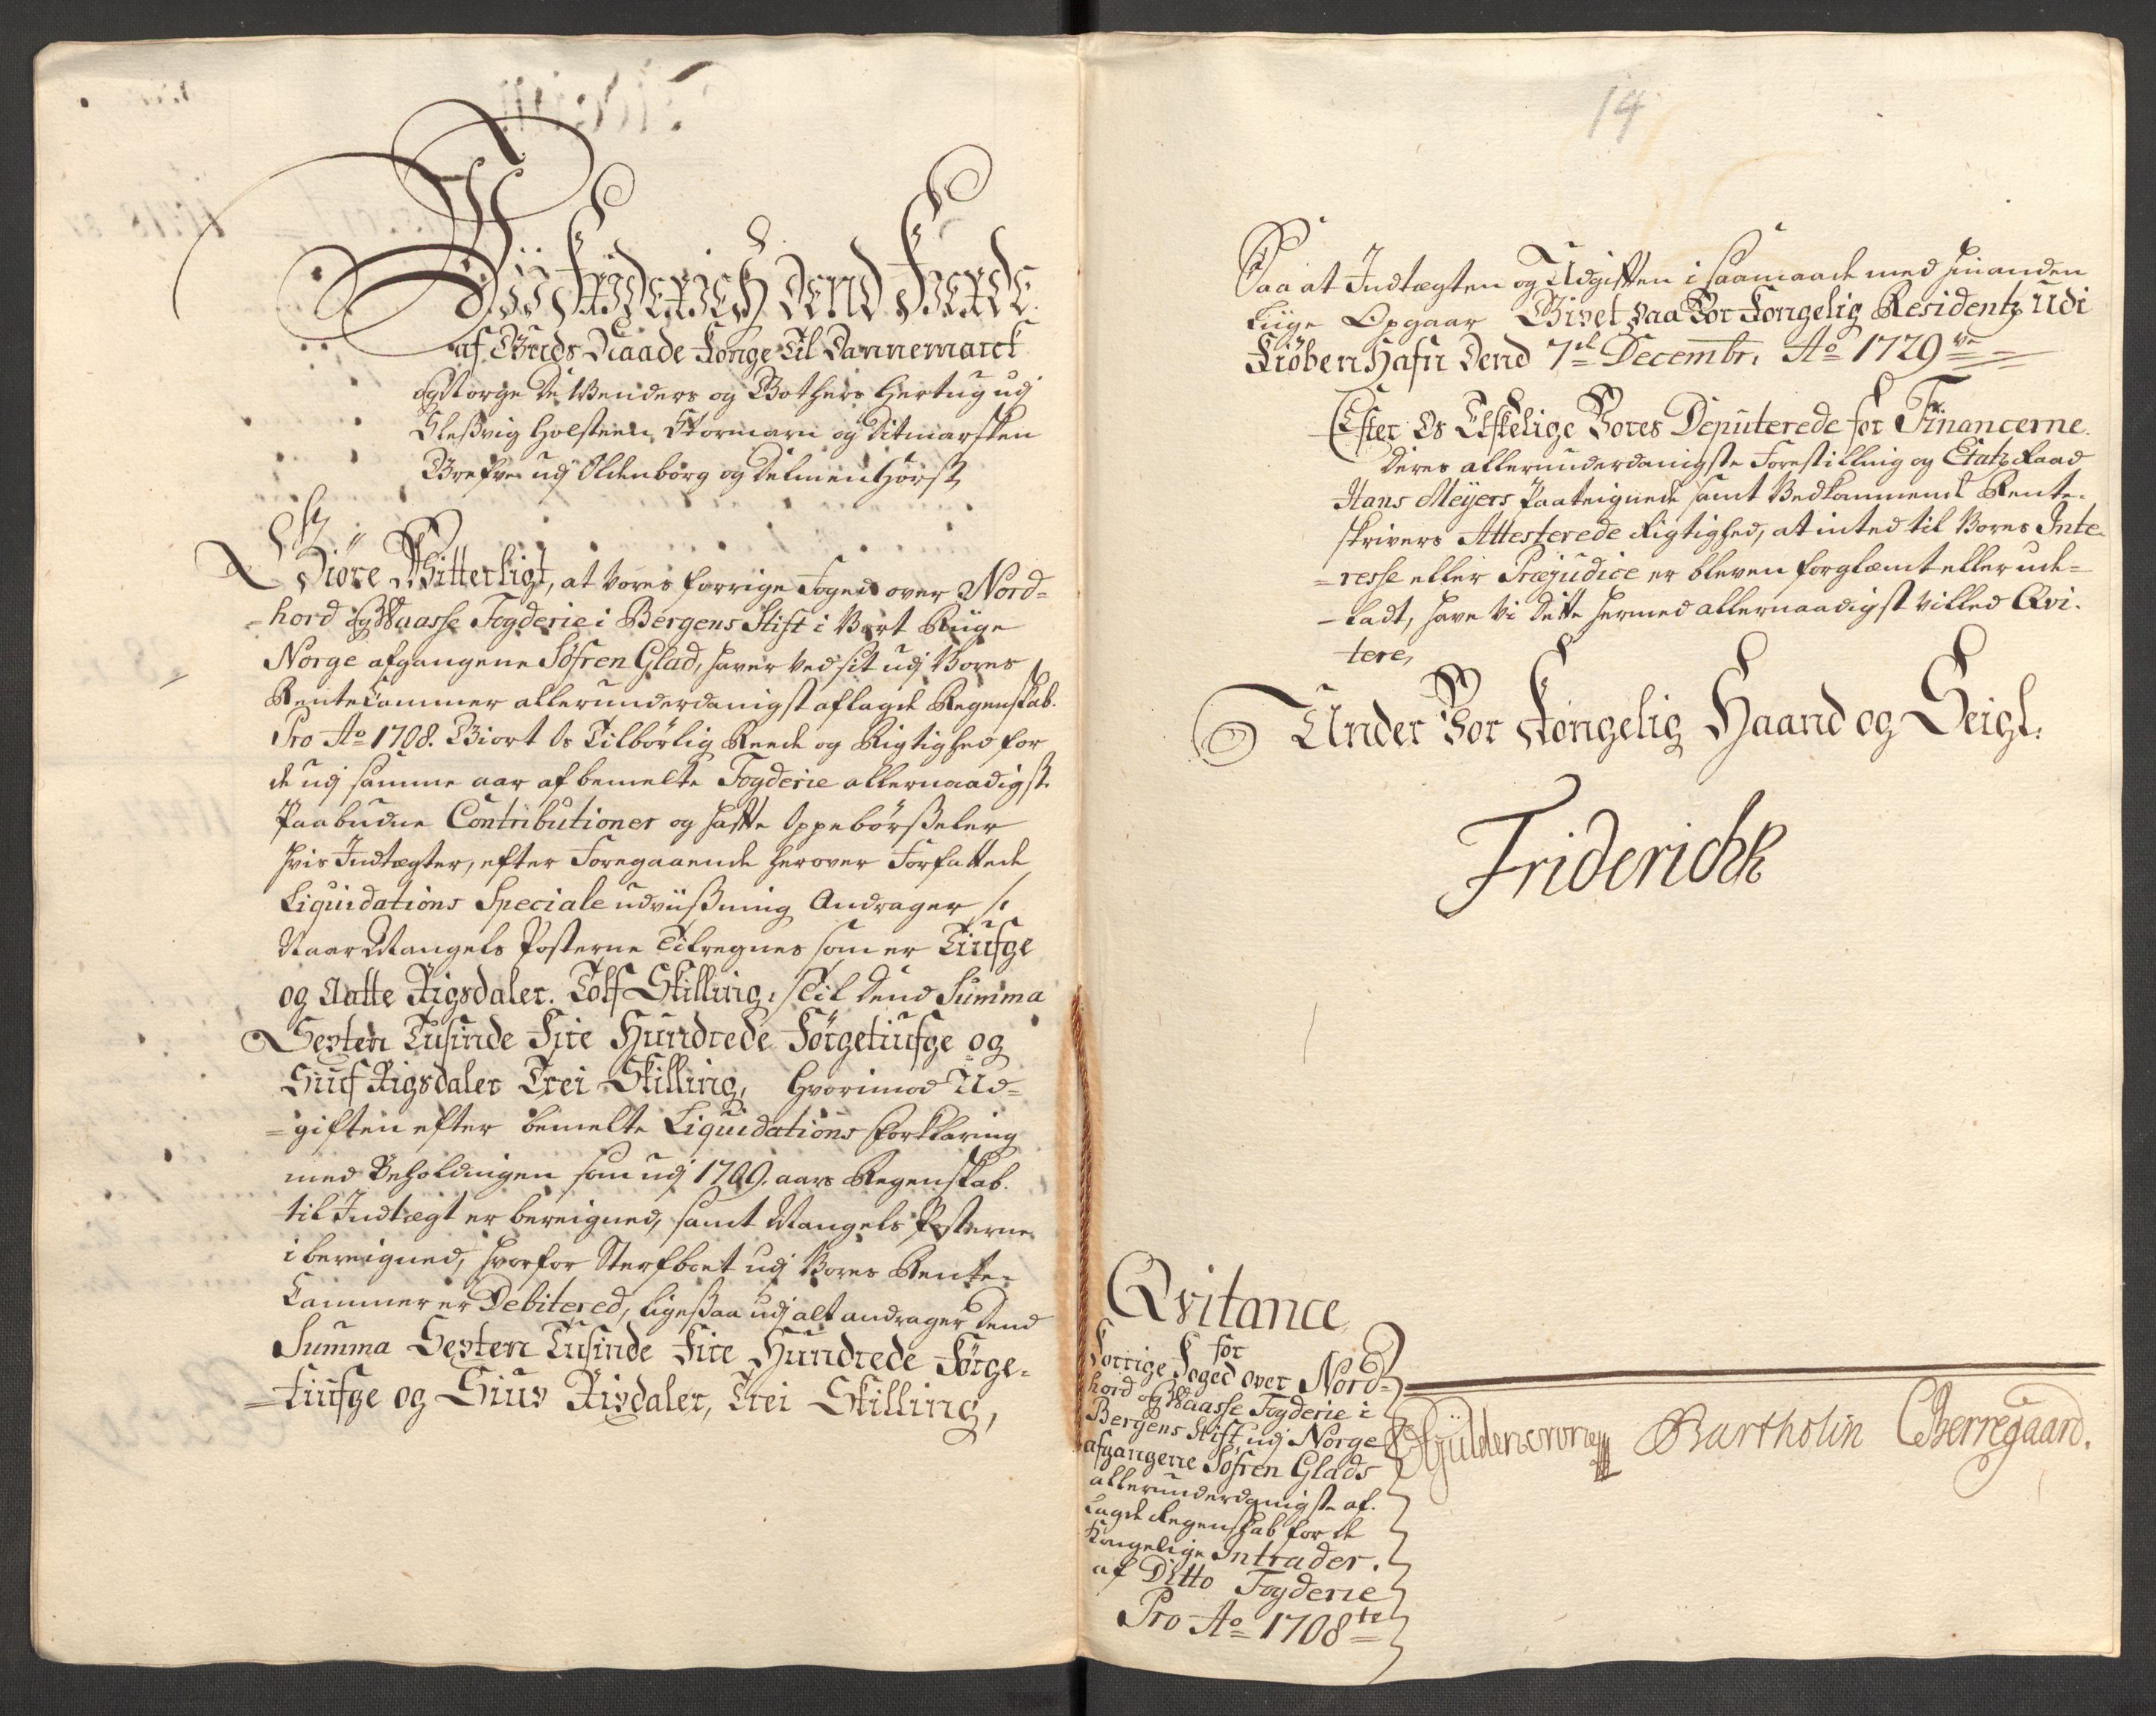 Wii Friderich dend Fierde
af Guds Naade Konge Til Dannemarck
og Norge De Wenders og Gothers Hertug udj
Slesvig Holsteen, Stormarn og Ditmarsken
Grefve udj Oldenborg og Delmenhorst
Giöre Witterligt, at vores forrige Foged over Nord-
hord og Waasse Fogderie i Bergens Stift i Vort Riige
Norge afgangene Söfren Glad, haver ved sit udj Vores
Rentecammer allerunderdanigst aflagde Regenskab.
Pro Ao 1708. Giort Os Tilbörlig Reede og Rigtighed for
de udj samme aar af bemelte Fogderie allernaadigst
Paabudne Contributioner og haffte Oppebörsseler
hvis Indtægter, efter Foregaaende herover Forfattede
Liquidations Speciale udviissning Andrager /:
Naar Mangels Posterne Tilregnes som er Tiufge
og Aatte Rigsdaler. Tolf Skilling :/ Til dend Summa
Sexten Tusinde Fire Hundrede Förgetiufge og
Siuf Rigsdaler Trei Skilling, Hvorimod Ud-
giften efter bemelte Liquidations Forklaring
med Beholdningen som udj 1709. aars Regenskab.
til Indtægt er beregned, samt Mangels Posterne
iberegned, hvorfor Sterfboet udj Vores Rente-
Cammer er Debitered, ligessaa udj alt andrager dend
Summa Sexten Tusinde Fire Hundrede Förge-
tiufge og Siuv Rixdaler, Trei Skilling,
14
Saa at Indtægten og Udgifften i saamaade med hinanden
liige Opgaar Givet paa Vor Kongelig Residentz Udi
Kiöbenhafn dend 7de Decembr. Ao 1729
Efter Os Elskelige Vores Deputerede for Financerne
deres allerunderdanigste Forestilling og Etatz Raad
Hans Meyers Paateignede samt Vedkommende Rente-
skrivers Attesterede Rigtighed, at inted til Vores Inte-
resse eller Præjudice er bleven forglemt eller ude-
ladt, have Vi dette hermed allernaadigst villed Qvi-
tere,
Under Vor Kongelig Haand og Seigl:
Friderich R
Qvitance
for
Forrige Foged over Nord-
hord og Waasse Fogderie i
Bergens Stift, udj Norge
afgangene Söfren Glads
allerunderdanigste af-
lagde Regenskab for de
Kongelige Intrader.
af Ditto Fogderie
Pro Ao 1708te
Güldencrone Bartholin CBerregaard.